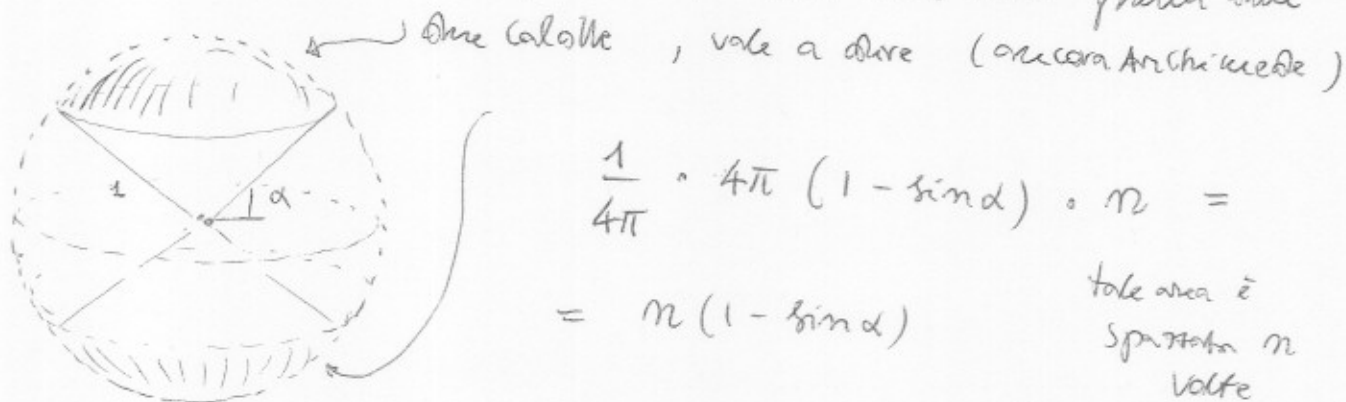 due calotte , vale a dire (ancora Archimede)
1/4π · 4π (1 - sin α) · n =
= n (1 - sin α)
tale area è
spazzata n
volte
1
α